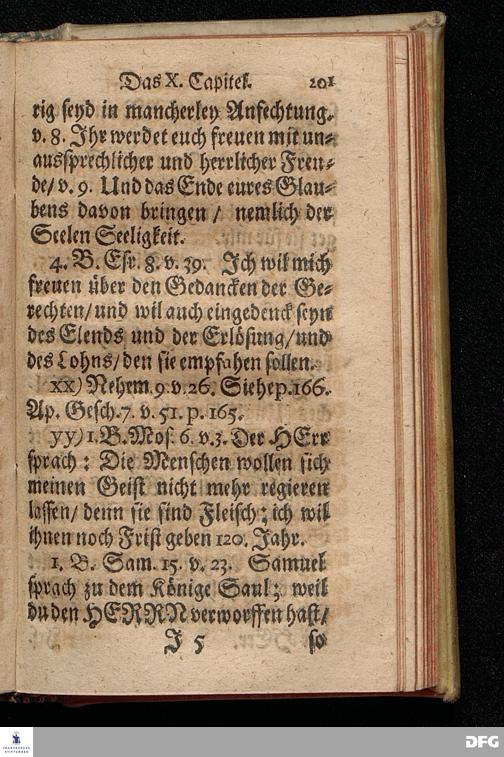 Das X. Capitel. 201
rig seyd in mancherley Anfechtung.
v. 8. Ihr werdet euch freuen mit un⸗
aussprechlicher und herrlicher Freu⸗
de/ v. 9. Und das Ende eures Glau⸗
bens davon bringen / nemlich der
Seelen Seeligkeit.
4. B. Esr. 8. v. 39. Ich wil mich
freuen über den Gedancken der Ge⸗
rechten/ und wil auch eingedenck seyn
des Elends und der Erlösung/ und
des Lohns/ den sie empfahen sollen.
xx) Nehem. 9. v. 26. Siehe p. 166.
Ap. Gesch. 7. v. 51. p. 165.
yy) 1. B. Mos. 6. v. 3. Der HErr
sprach: Die Menschen wollen sich
meinen Geist nicht mehr regieren
lassen/ denn sie sind Fleisch; ich wil
ihnen noch Frist geben 120. Jahr.
1. B. Sam. 15. v. 23. Samuel
sprach zu dem Könige Saul; weil
du den HERRN verworffen hast/
I 5 so
FRANCKESCHE
STIFTUNGEN
DFG